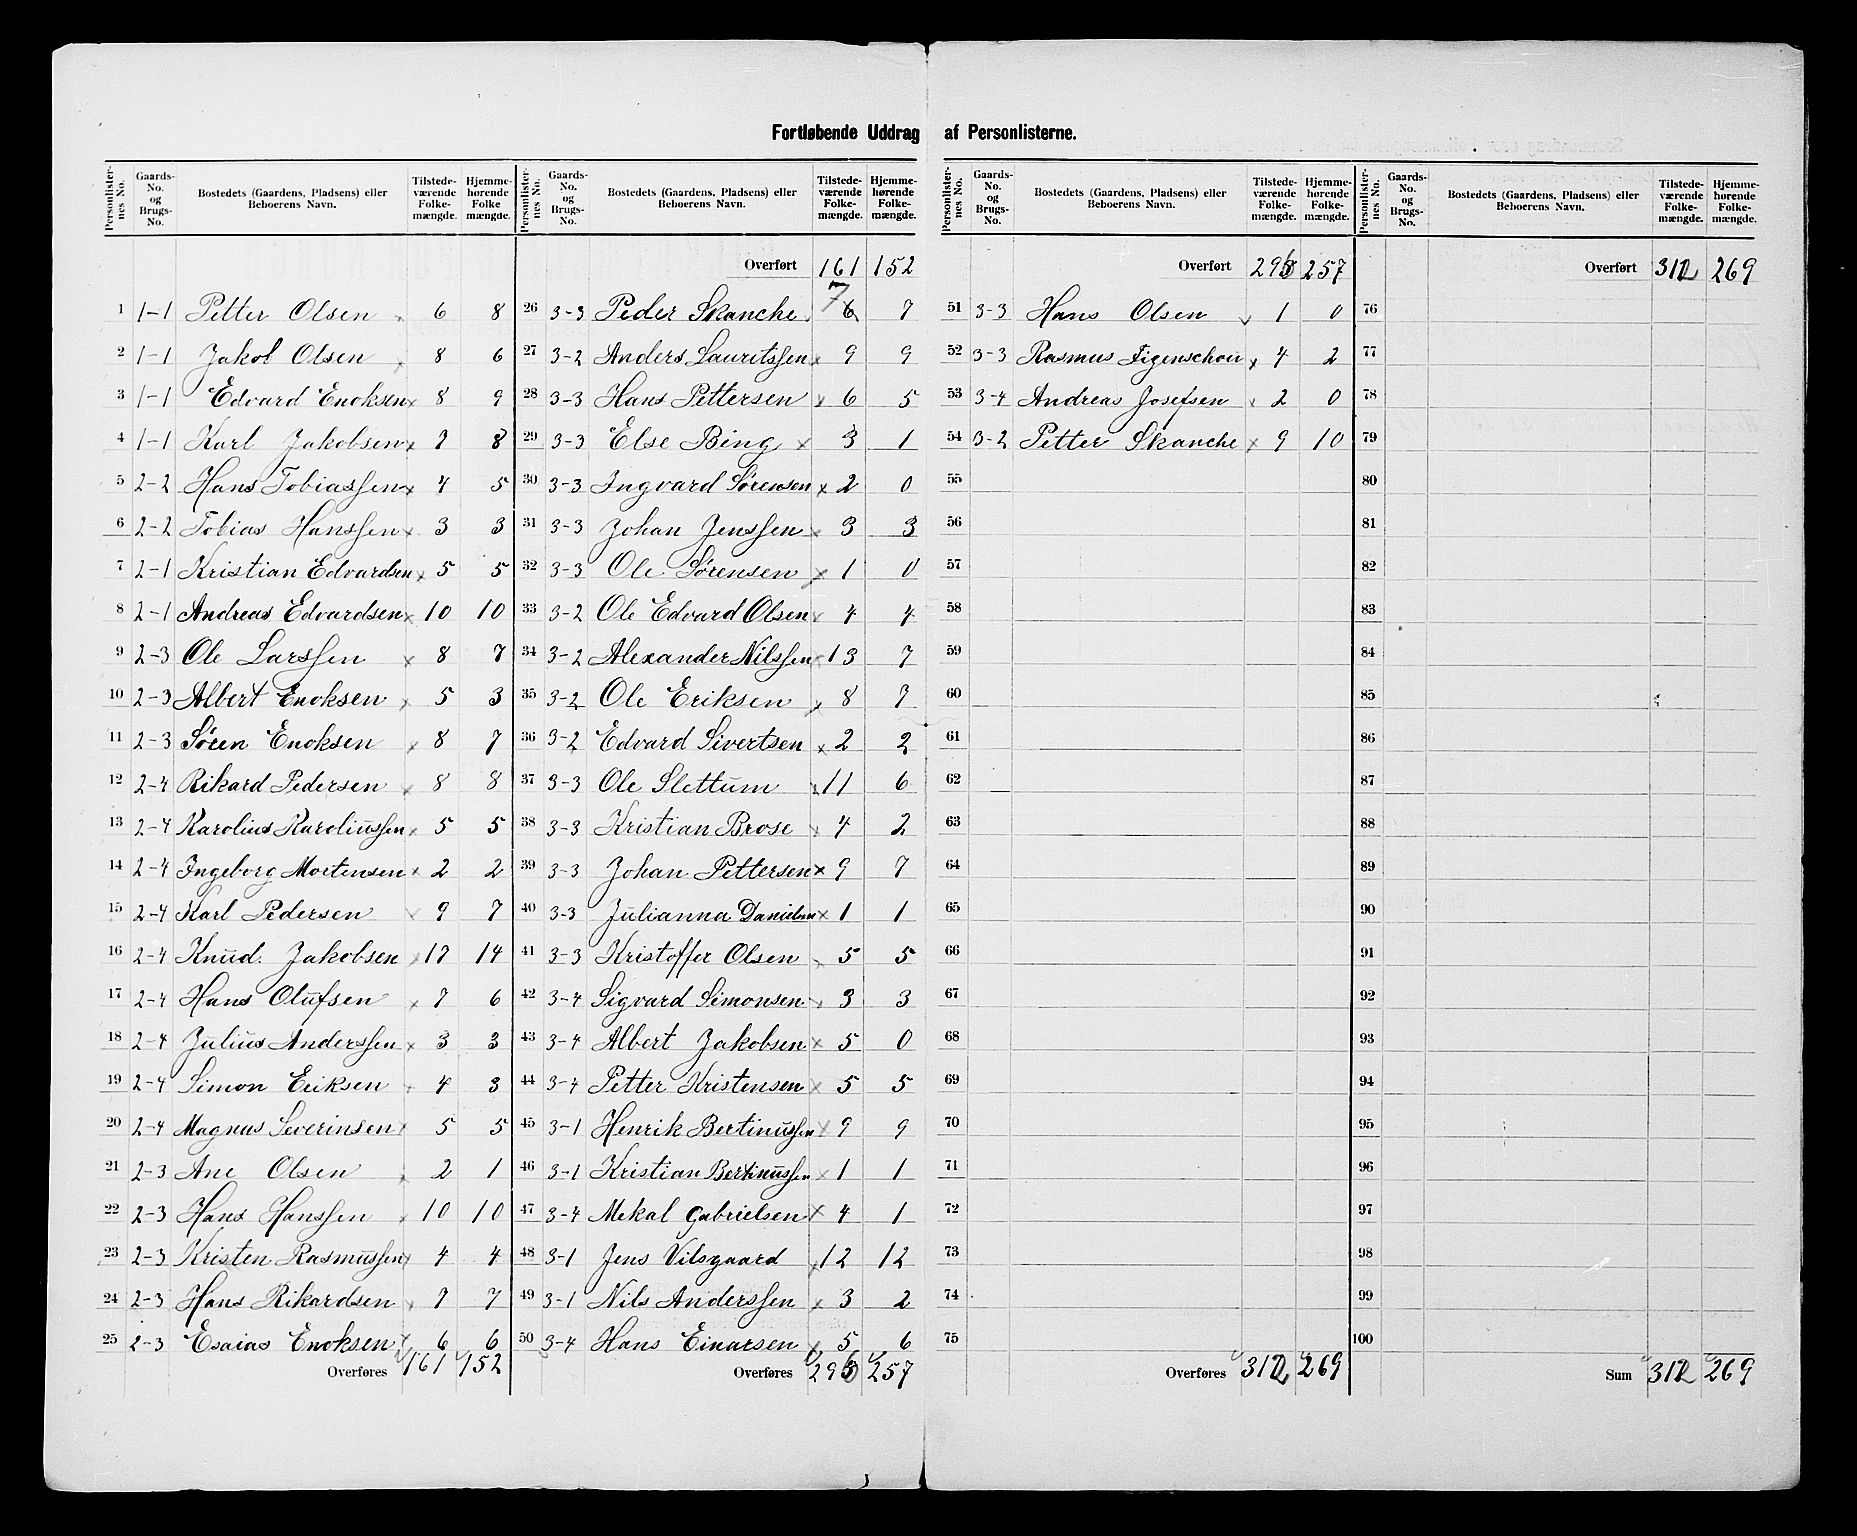 Fortløbende Uddrag af Personlisterne.
Personlisternes No. | Gaards-No. og Brugs-No. | Bostedets (Gaardens, Pladsens) eller Beboerens Navn. | Tilstedeværende Folkemængde. | Hjemmehørende Folkemængde.
1 1-1 Petter Olsen 6 8
2 1-1 Jakob Olsen 8 6
3 1-1 Edvard Enoksen x 8 9
4 1-1 Karl Jakobsen x 7 8
5 2-2 Hans Tobiassen x 4 5
6 2-2 Tobias Hanssen x 3 3
7 2-1 Kristian Edvardsen x 5 5
8 2-1 Andreas Edvardsen x 10 10
9 2-3 Ole Larssen x 8 7
10 2-3 Albert Enoksen x 5 3
11 2-3 Søren Enoksen x 8 7
12 2-4 Rikard Pedersen x 8 8
13 2-4 Karolius Karoliussen x 5 5
14 2-4 Ingeborg Mortensen x 2 2
15 2-4 Karl Pedersen x 9 7
16 2-4 Knud Jakobsen x 17 14
17 2-4 Hans Olufsen x 7 6
18 2-4 Julius Anderssen x 3 3
19 2-4 Simon Eriksen x 4 3
20 2-4 Magnus Severinsen x 5 5
21 2-3 Ane Olsen x 2 1
22 2-3 Hans Hanssen x 10 10
23 2-3 Kristen Rasmussen x 4 4
24 2-3 Hans Rikardsen x 7 7
25 2-3 Esaias Enoksen x 6 6
Overføres 161 152
Personlisternes No. | Gaards-No. og Brugs-No. | Bostedets (Gaardens, Pladsens) eller Beboerens Navn. | Tilstedeværende Folkemængde. | Hjemmehørende Folkemængde.
Overført 161 152
26 3-3 Peder Skanche 7 6 7
27 3-2 Anders Lauritssen x 9 9
28 3-3 Hans Pettersen x 6 5
29 3-3 Else Bing x 3 1
30 3-3 Ingvard Sørensen x 2 0
31 3-3 Johan Jenssen x 3 3
32 3-3 Ole Sørensen x 1 0
33 3-2 Ole Edvard Olsen x 4 4
34 3-2 Alexander Nilssen x 13 7
35 3-2 Ole Eriksen x 8 7
36 3-2 Edvard Sivertsen x 2 2
37 3-3 Ole Slettum x 11 6
38 3-3 Kristian Brose x 4 2
39 3-3 Johan Pettersen x 9 7
40 3-3 Julianna Danielsen x 1 1
41 3-3 Kristoffer Olsen x 5 5
42 3-4 Sigvard Simonsen x 3 3
43 3-4 Albert Jakobsen x 5 0
44 3-4 Petter Kristensen x 5 5
45 3-1 Henrik Bertinussen x 9 9
46 3-1 Kristian Bertinussen x 1 1
47 3-4 Mekal Gabrielsen x 4 1
48 3-1 Jens Vilsgaard x 12 12
49 3-1 Nils Anderssen x 3 2
50 3-4 Hans Einarsen x 5 6
Overføres 296 257
Personlisternes No. | Gaards-No. og Brugs-No. | Bostedets (Gaardens, Pladsens) eller Beboerens Navn. | Tilstedeværende Folkemængde. | Hjemmehørende Folkemængde.
Overført 296 257
51 3-3 Hans Olsen x 1 0
52 3-3 Rasmus Figenschou x 4 2
53 3-4 Andreas Josefsen x 2 0
54 3-2 Petter Skanche x 9 10
55
56
57
58
59
60
61
62
63
64
65
66
67
68
69
70
71
72
73
74
75
Overføres 312 269
Personlisternes No. | Gaards-No. og Brugs-No. | Bostedets (Gaardens, Pladsens) eller Beboerens Navn. | Tilstedeværende Folkemængde. | Hjemmehørende Folkemængde.
Overført 312 269
76
77
78
79
80
81
82
83
84
85
86
87
88
89
90
91
92
93
94
95
96
97
98
99
100
Sum 312 269